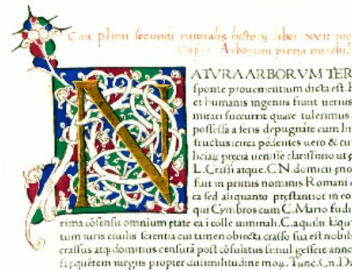 Caii plinii secundi naturalis historie liber .XVII. inc
Cap. 1. Arborum precia mirabil
NATVRA ARBORVM TER
sponte prouenientium dicta est.
et humanis ingeniis fiunt uerius
mirari succurrit quare tulerimus
possessa a feris depugnare cum
fructus uiris pendentes uero &
liciaz precia uenisse clarissimo ut
L. Crassi atque. CN. domicii
fuit in primis nominis Romani
ea sed aliquanto prestantior in co
qui Cymbros cum C. Mario fudit
rima consensu omnium etate ea i colle uiminali. C. aquilii Equi
tum iuris ciuilis scientia cum tamen obiecta crasso sua est
crassus atqz domitius censura post consulatus simul gessere anno
propter dissimilitudine mox. Tunc. Cn. Do